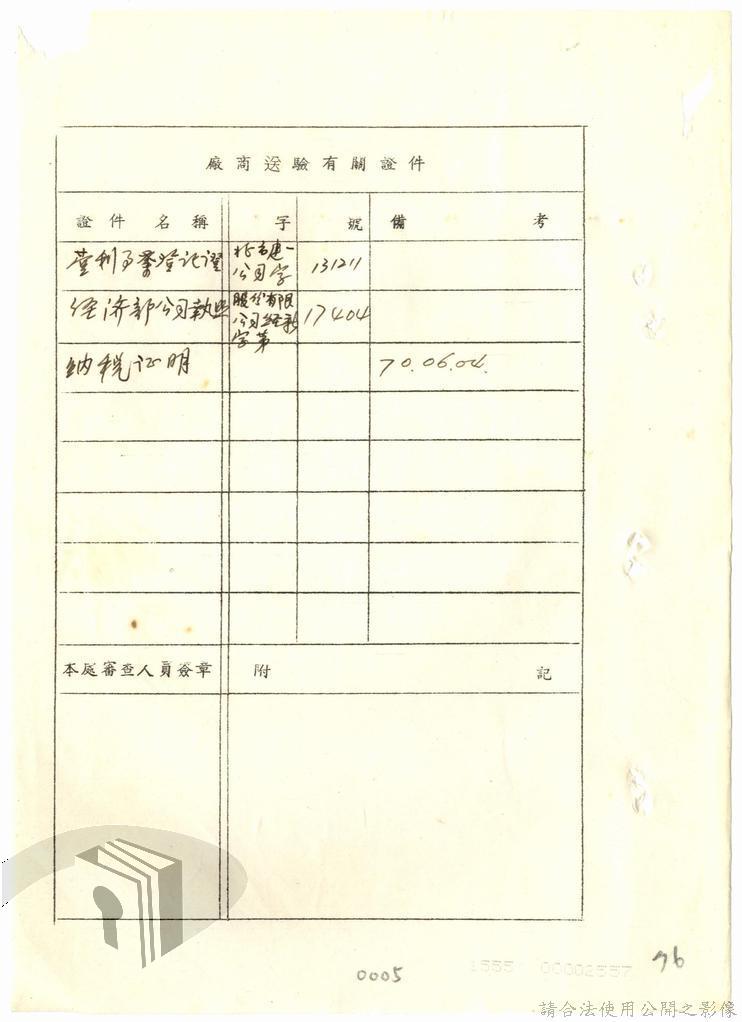 廠商送驗有關證件
證件名稱 字 號 備考
營利事業登記證 北市建一公司字 131211
经济部公司執照 股份有限公司经新字第 17404
纳税证明 70.06.04.
本處審查人員簽章 附記
0005
00002557
76
請合法使用公開之影像